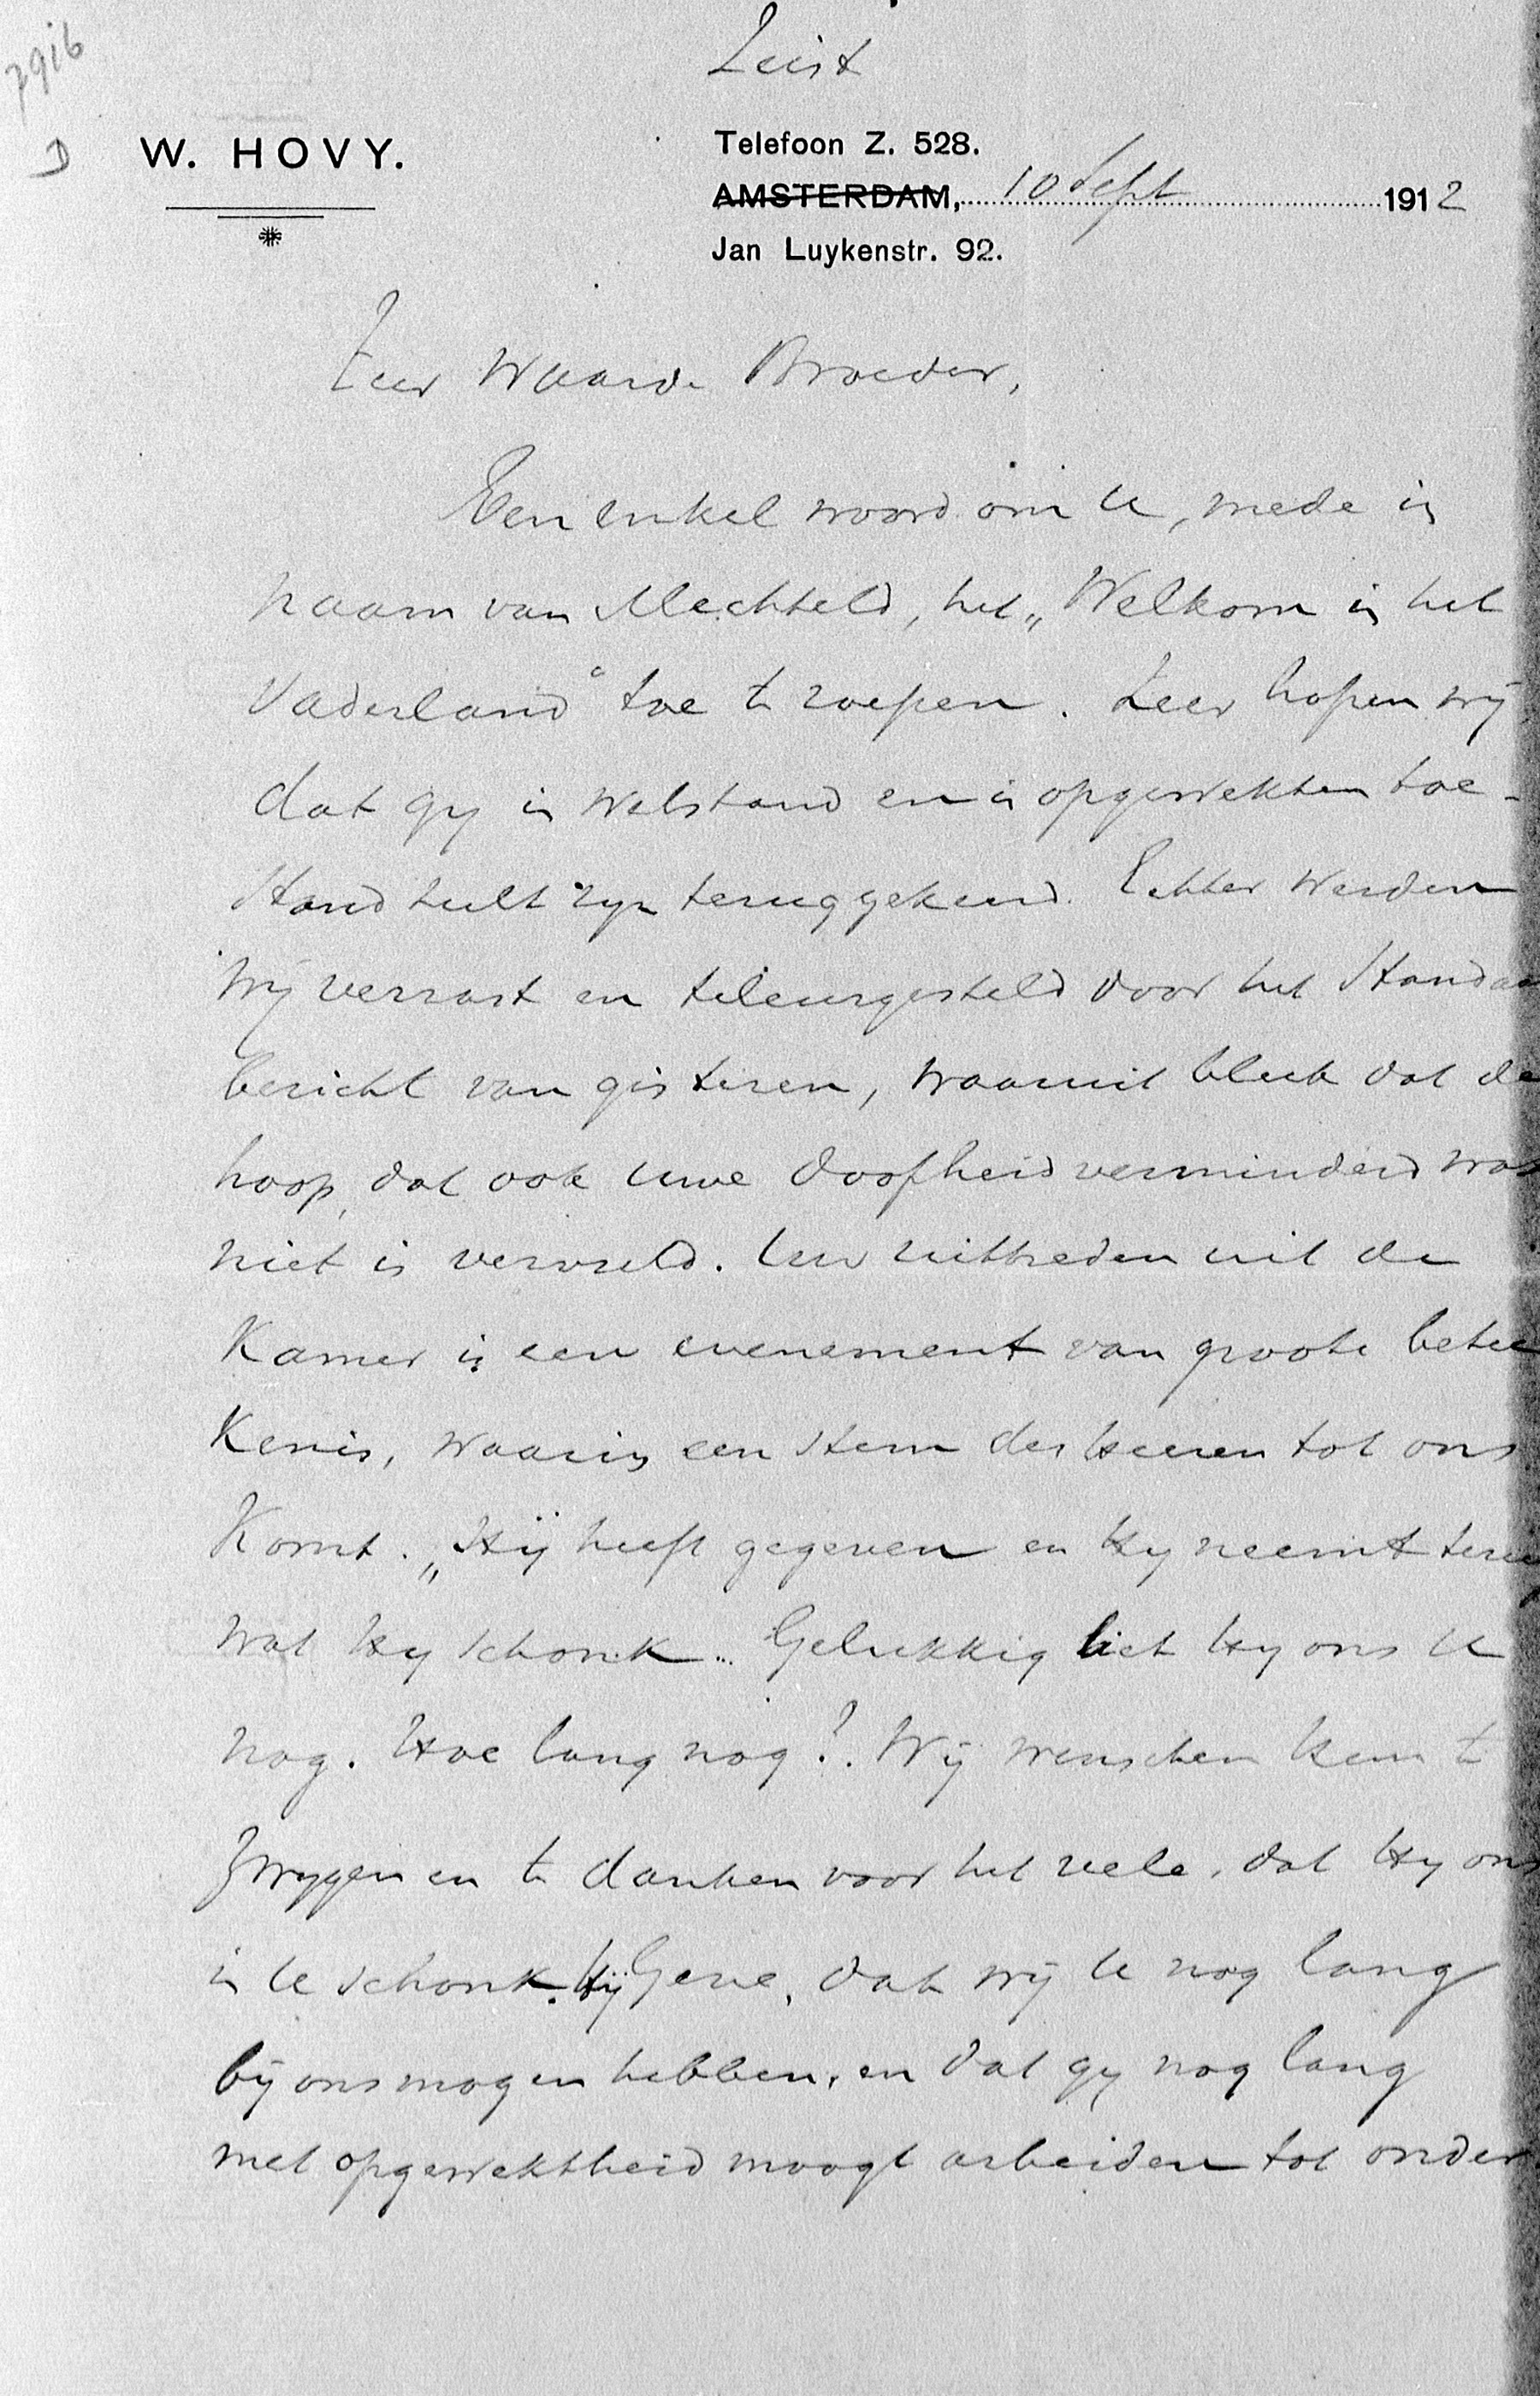 7916
D
Zeist
W. HOVY.
Telefoon Z. 528.
AMSTERDAM, 10 Sept 1912
Jan Luykenstr. 92.
Zeer Waarde Broeder,
Een enkel woord om U, mede in
naam van Mechteld, het „Welkom in het
Vaderland" toe te roepen. Zeer hopen wij
dat gij in welstand en in opgewekten toe-
stand zult zijn teruggekeerd. Echter werden
wij verrast en teleurgesteld door het Standaa
bericht van gisteren, waaruit bleek dat de
hoop, dat ook uwe doofheid verminderd was
niet is vervuld. Uw uittreden uit de
Kamer is een evenement van groote betee
kenis, waarin een stem des Heeren tot ons
komt. „Hij heeft gegeven en Hij neemt terug
wat Hij schonk". Gelukkig liet Hij ons U
nog. Hoe lang nog?. Wij wenschen Hem te
zwijgen en te danken voor het vele, dat Hij ons
in U schonk. Hij Geve, dat wij U nog lang
bij ons mogen hebben, en dat gij nog lang
met opgewektheid moogt arbeiden tot onder